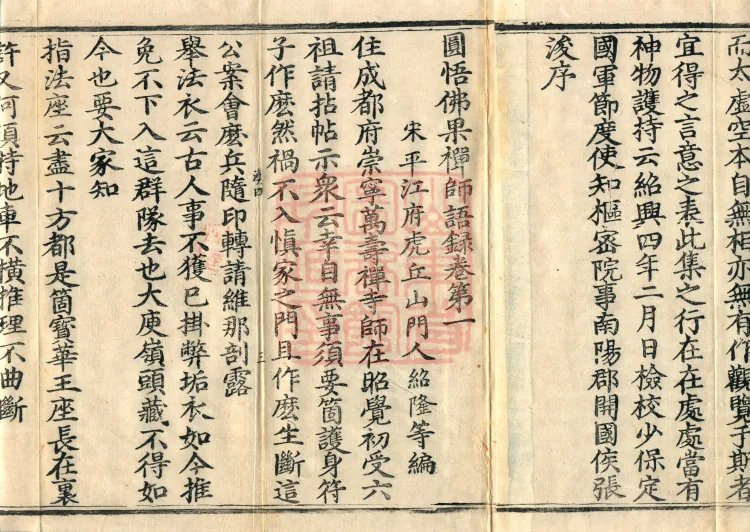 而太虛空本自無相亦無有作觀覽于斯者
宜得之言意之表此集之行在在處處當有
神物護持云紹興四年二月日檢校少保定
國軍節度使知樞密院事南陽郡開國侯張
浚序
圓悟佛果禪師語錄卷第一
宋平江府虎丘山門人紹隆等編
住成都府崇寧萬壽禪寺師在昭覺初受六
祖請拈帖示衆云幸自無事須要箇護身符
子作麽然禍不入慎家之門且作麽生斷這
公案會麽兵隨印轉請維那剖露
舉法衣云古人事不獲已掛弊垢衣如今推
免不下入這群隊去也大庾嶺頭藏不得如
今也要大家知
指法座云盡十方都是箇寶華王座長在裏
許又何須特地車不橫推理不曲斷